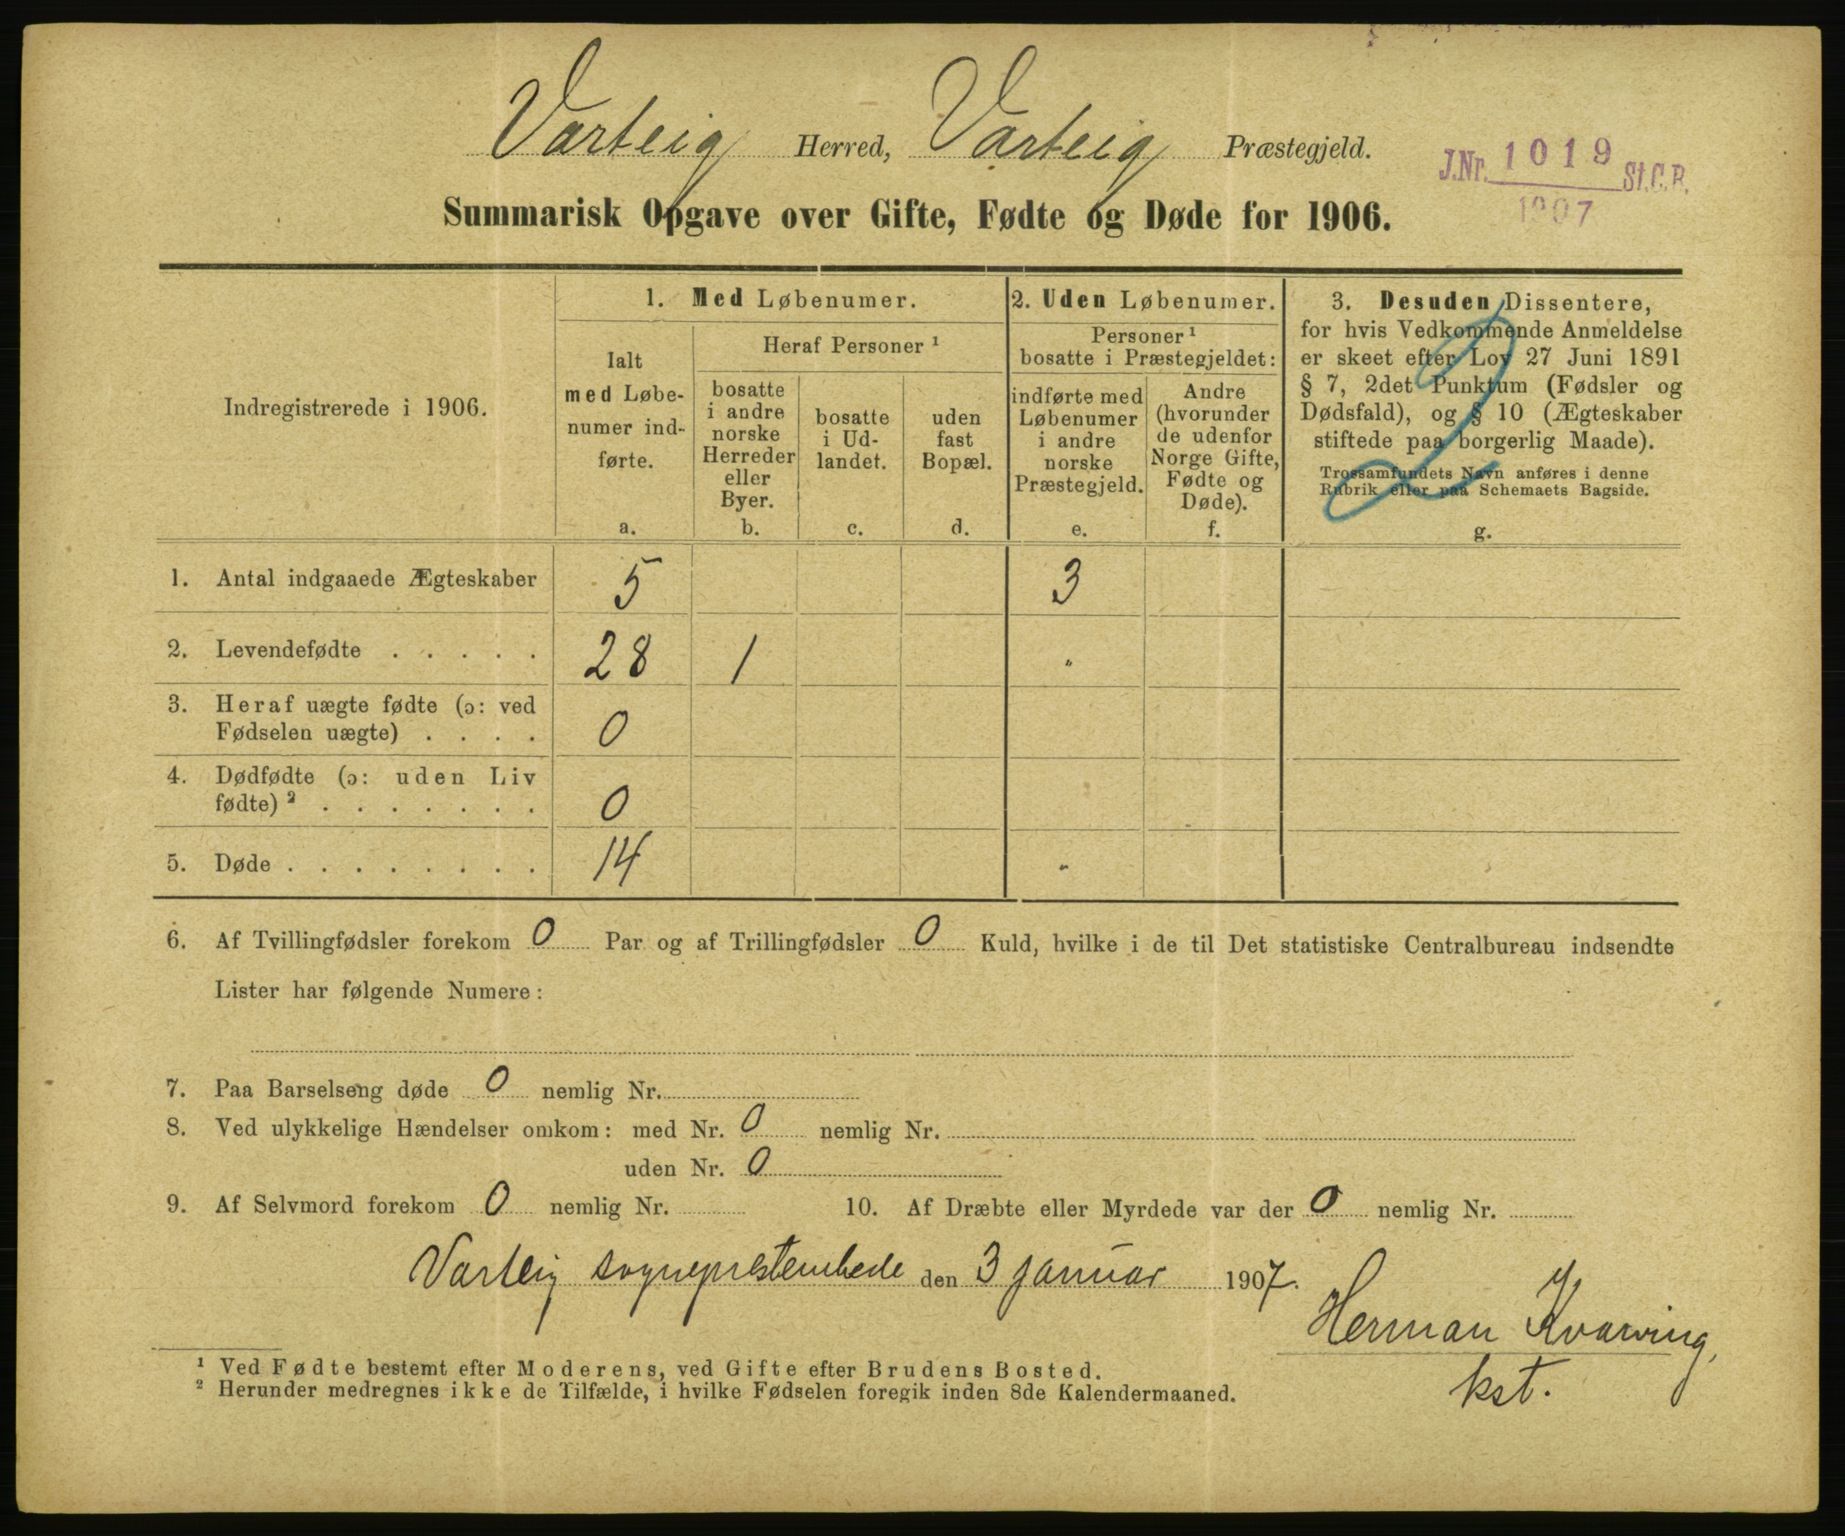 Varteig Herred, Varteig Præstegjeld.
J.Nr. 1019 St.C.B.
1907
Summarisk Opgave over Gifte, Fødte og Døde for 1906.
Indregistrerede i 1906.
1. Med Løbenumer.
Ialt
med Løbe-
numer ind-
førte.
a.
Heraf Personer ¹
bosatte
i andre
norske
Herreder
eller
Byer.
b.
bosatte
i Ud-
landet.
c.
uden
fast
Bopæl.
d.
2. Uden Løbenumer.
Personer ¹
bosatte i Præstegjeldet:
indførte med
Løbenumer
i andre
norske
Præstegjeld.
e.
Andre
(hvorunder
de udenfor
Norge Gifte,
Fødte og
Døde).
f.
3. Desuden Dissentere,
for hvis Vedkommende Anmeldelse
er skeet efter Lov 27 Juni 1891
§ 7, 2det Punktum (Fødsler og
Dødsfald), og § 10 (Ægteskaber
stiftede paa borgerlig Maade).
Trossamfundets Navn anføres i denne
Rubrik eller paa Schemaets Bagside.
g.
2
1. Antal indgaaede Ægteskaber 5 3
2. Levendefødte . . . . . 28 1 "
3. Heraf uægte fødte (ɔ: ved
Fødselen uægte) . . . . 0
4. Dødfødte (ɔ: uden Liv
fødte) ² . . . . . . . 0
5. Døde . . . . . . . . 14 "
6. Af Tvillingfødsler forekom 0 Par og af Trillingfødsler 0 Kuld, hvilke i de til Det statistiske Centralbureau indsendte
Lister har følgende Numere:
7. Paa Barselseng døde 0 nemlig Nr.
8. Ved ulykkelige Hændelser omkom: med Nr. 0 nemlig Nr.
uden Nr. 0
9. Af Selvmord forekom 0 nemlig Nr. 10. Af Dræbte eller Myrdede var der 0 nemlig Nr.
Varteig sogneprestembede den 3 januar 1907.
Herman Kvarving,
kst.
¹ Ved Fødte bestemt efter Moderens, ved Gifte efter Brudens Bosted.
² Herunder medregnes ikke de Tilfælde, i hvilke Fødselen foregik inden 8de Kalendermaaned.